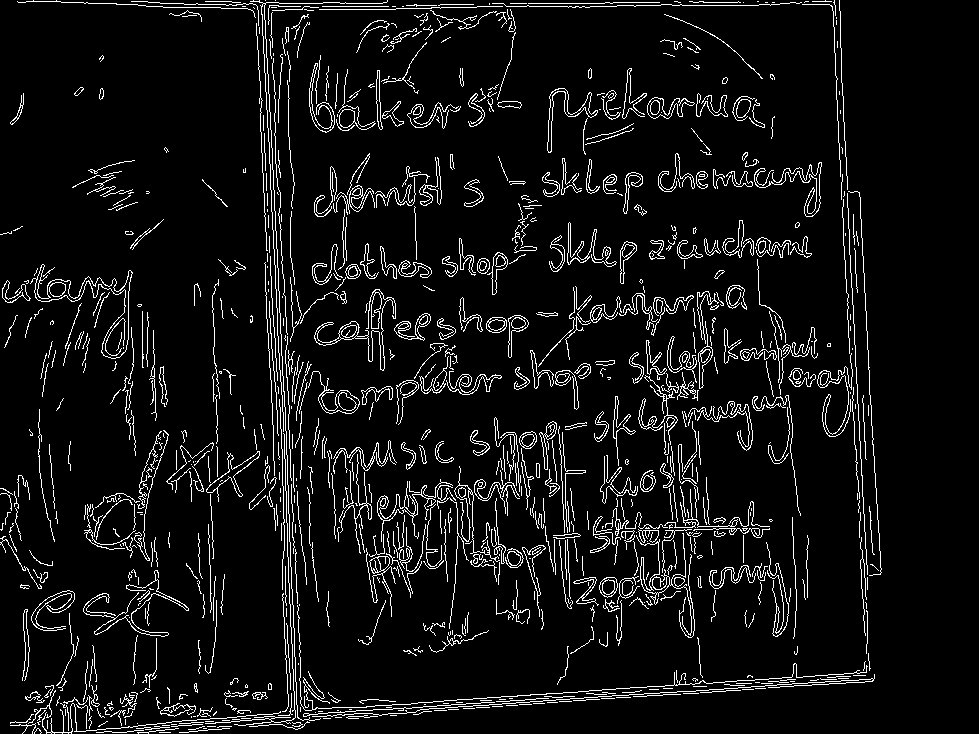 baker's - piekarnia,
chemist's - sklep chemiczny
clothes shop - sklep z ciuchami
coffee shop - kawiarnia
computer shop - sklep komput.
erowy
music shop - sklep muzyczny
newsagent's - kiosk
pet shop - sklep z zab.
zoologiczny
jest